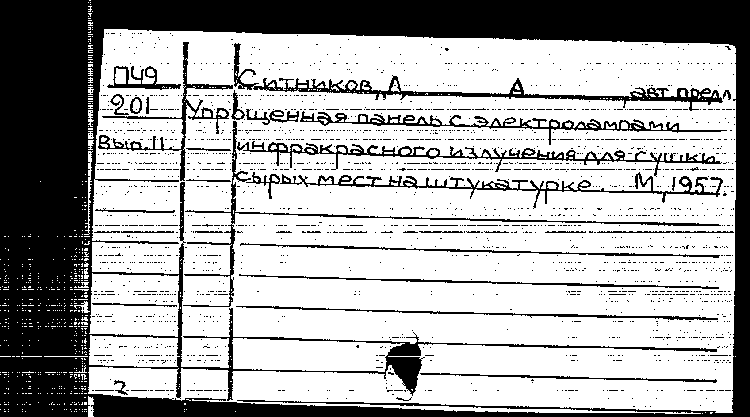 П49 Ситников, А, А , авт предл.
201 Упрощенная панель с электролампами
Вып. 11. инфракрасного излучения для сушки
сырых мест на штукатурке. М, 1957.
2